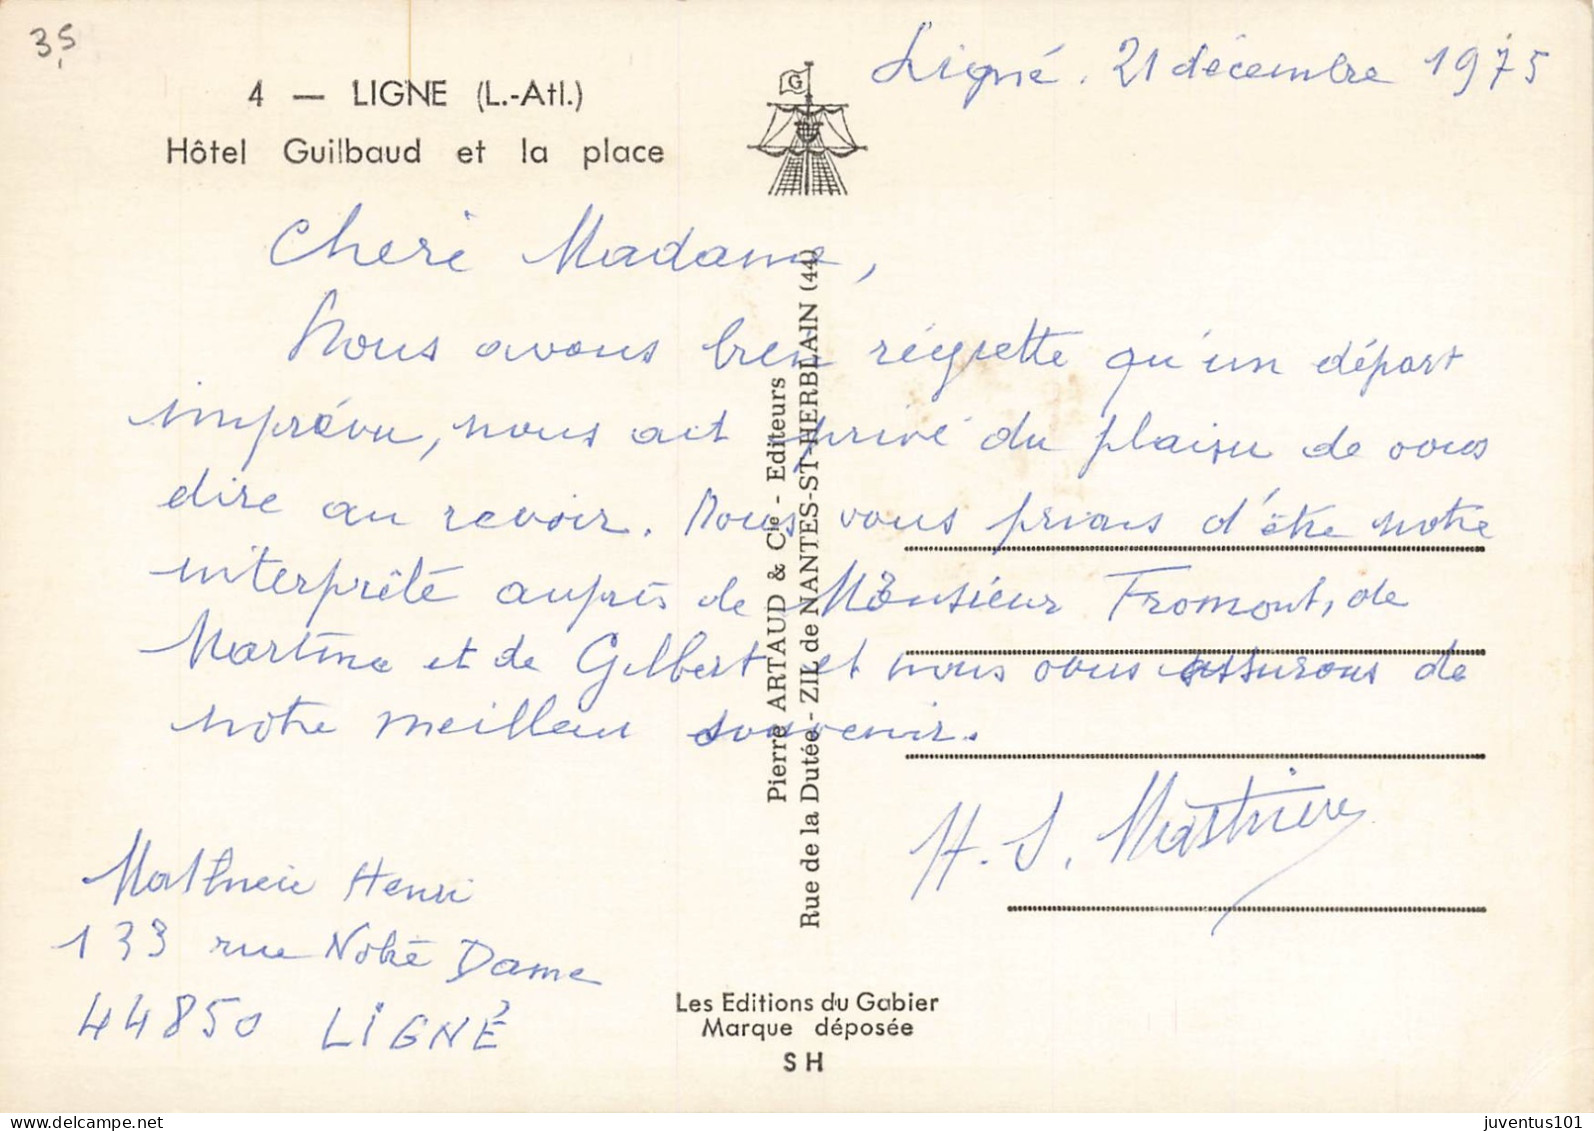 35
4 — LIGNE (L.-Atl.)
Hôtel Guilbaud et la place
G
Ligné. 21 décembre 1975
Chere Madame,
Nous avons bien régretté qu'un départ
imprévu, nous ait privé du plaisir de vous
dire au revoir. Nous vous prions d'être notre
interprêté auprès de Monsieur Fromont, de
Martine et de Gilbert et nous vous assurons de
notre meilleur souvenir.
H. J.
Henri
133 rue Notre Dame
44850 LIGNÉ
Pierre ARTAUD & Cie - Editeurs
Rue de la Dutée - ZIL de NANTES-ST-HERBLAIN (44)
Les Editions du Gabier
Marque déposée
SH
juventus101